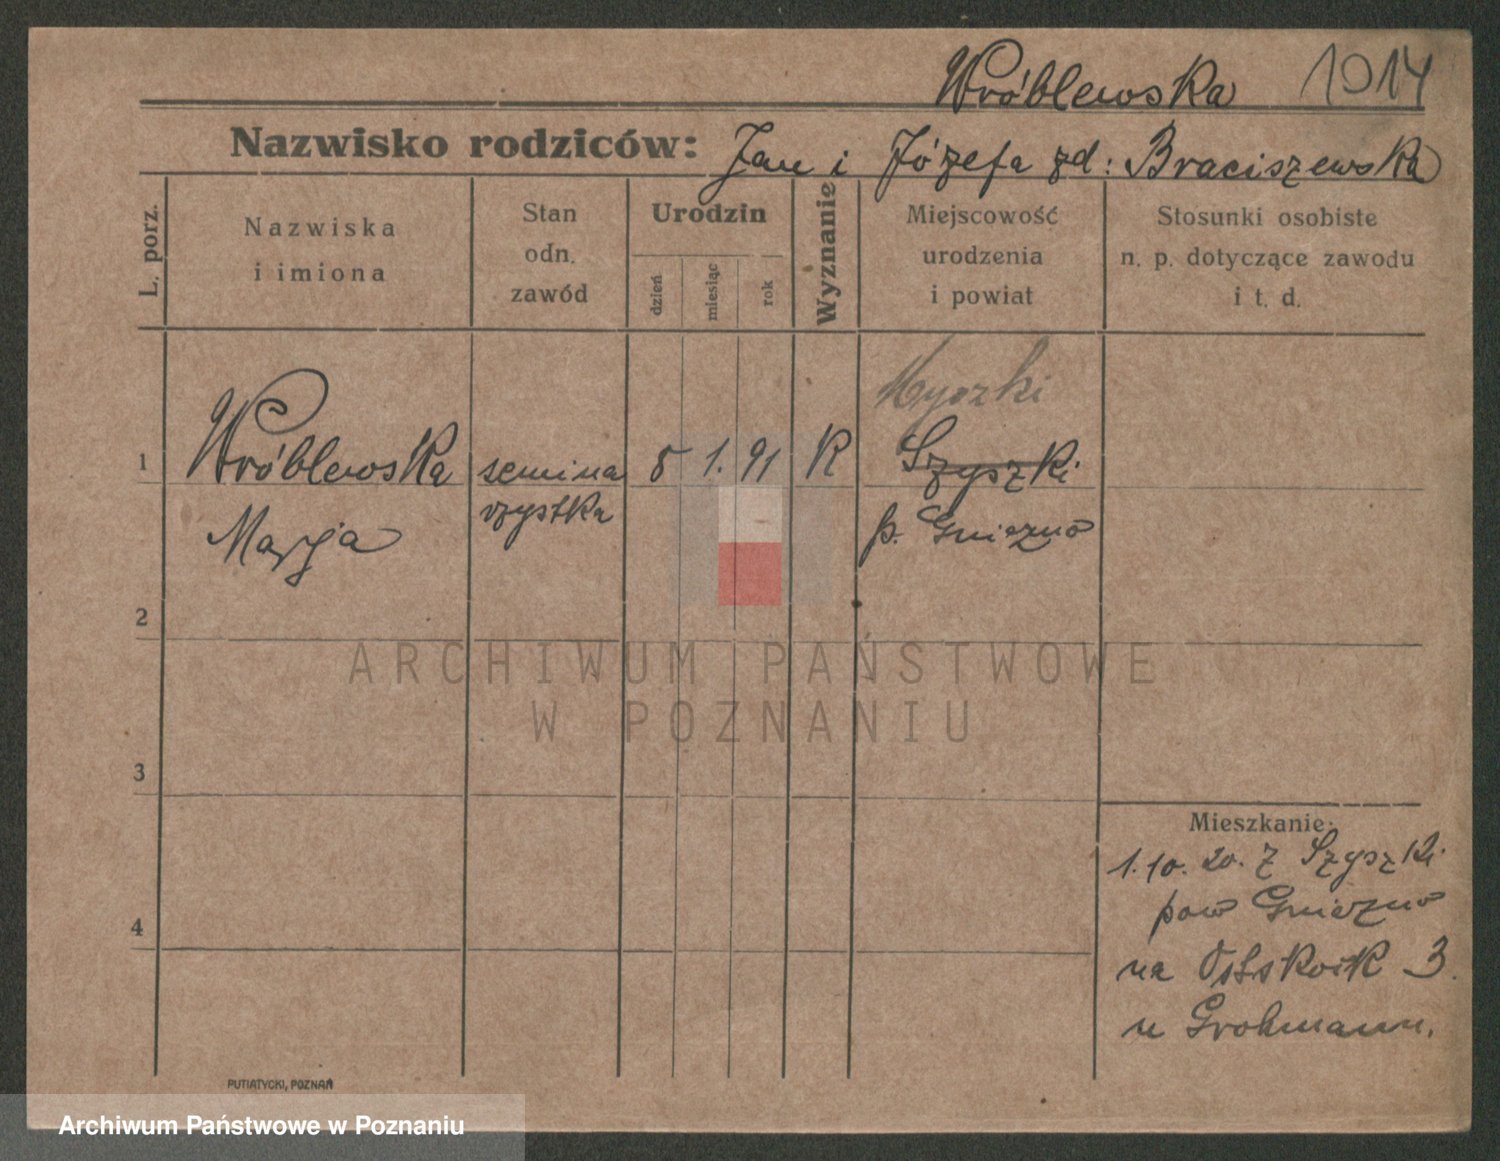 Wróblewska 1914
Nazwisko rodziców: Jan i Józefa zd: Braciszewska
L. porz.
Nazwiska
i imiona
Stan
odn.
zawód
Urodzin
dzień
miesiąc
rok
Wyznanie
Miejscowość
urodzenia
i powiat
Stosunki osobiste
n. p. dotyczące zawodu
i t. d.
1
Wróblewska
Marja
semina
rzystka
8 1. 91
K
Myszki
Szyszki
p. Gniezno
2
3
4
Mieszkanie:
1.10.20. z Szyszki
pow Gniezno
na 3.
u Grohmann.
PUTIATYCKI, POZNAŃ
ARCHIWUM PAŃSTWOWE
W POZNANIU
Archiwum Państwowe w Poznaniu